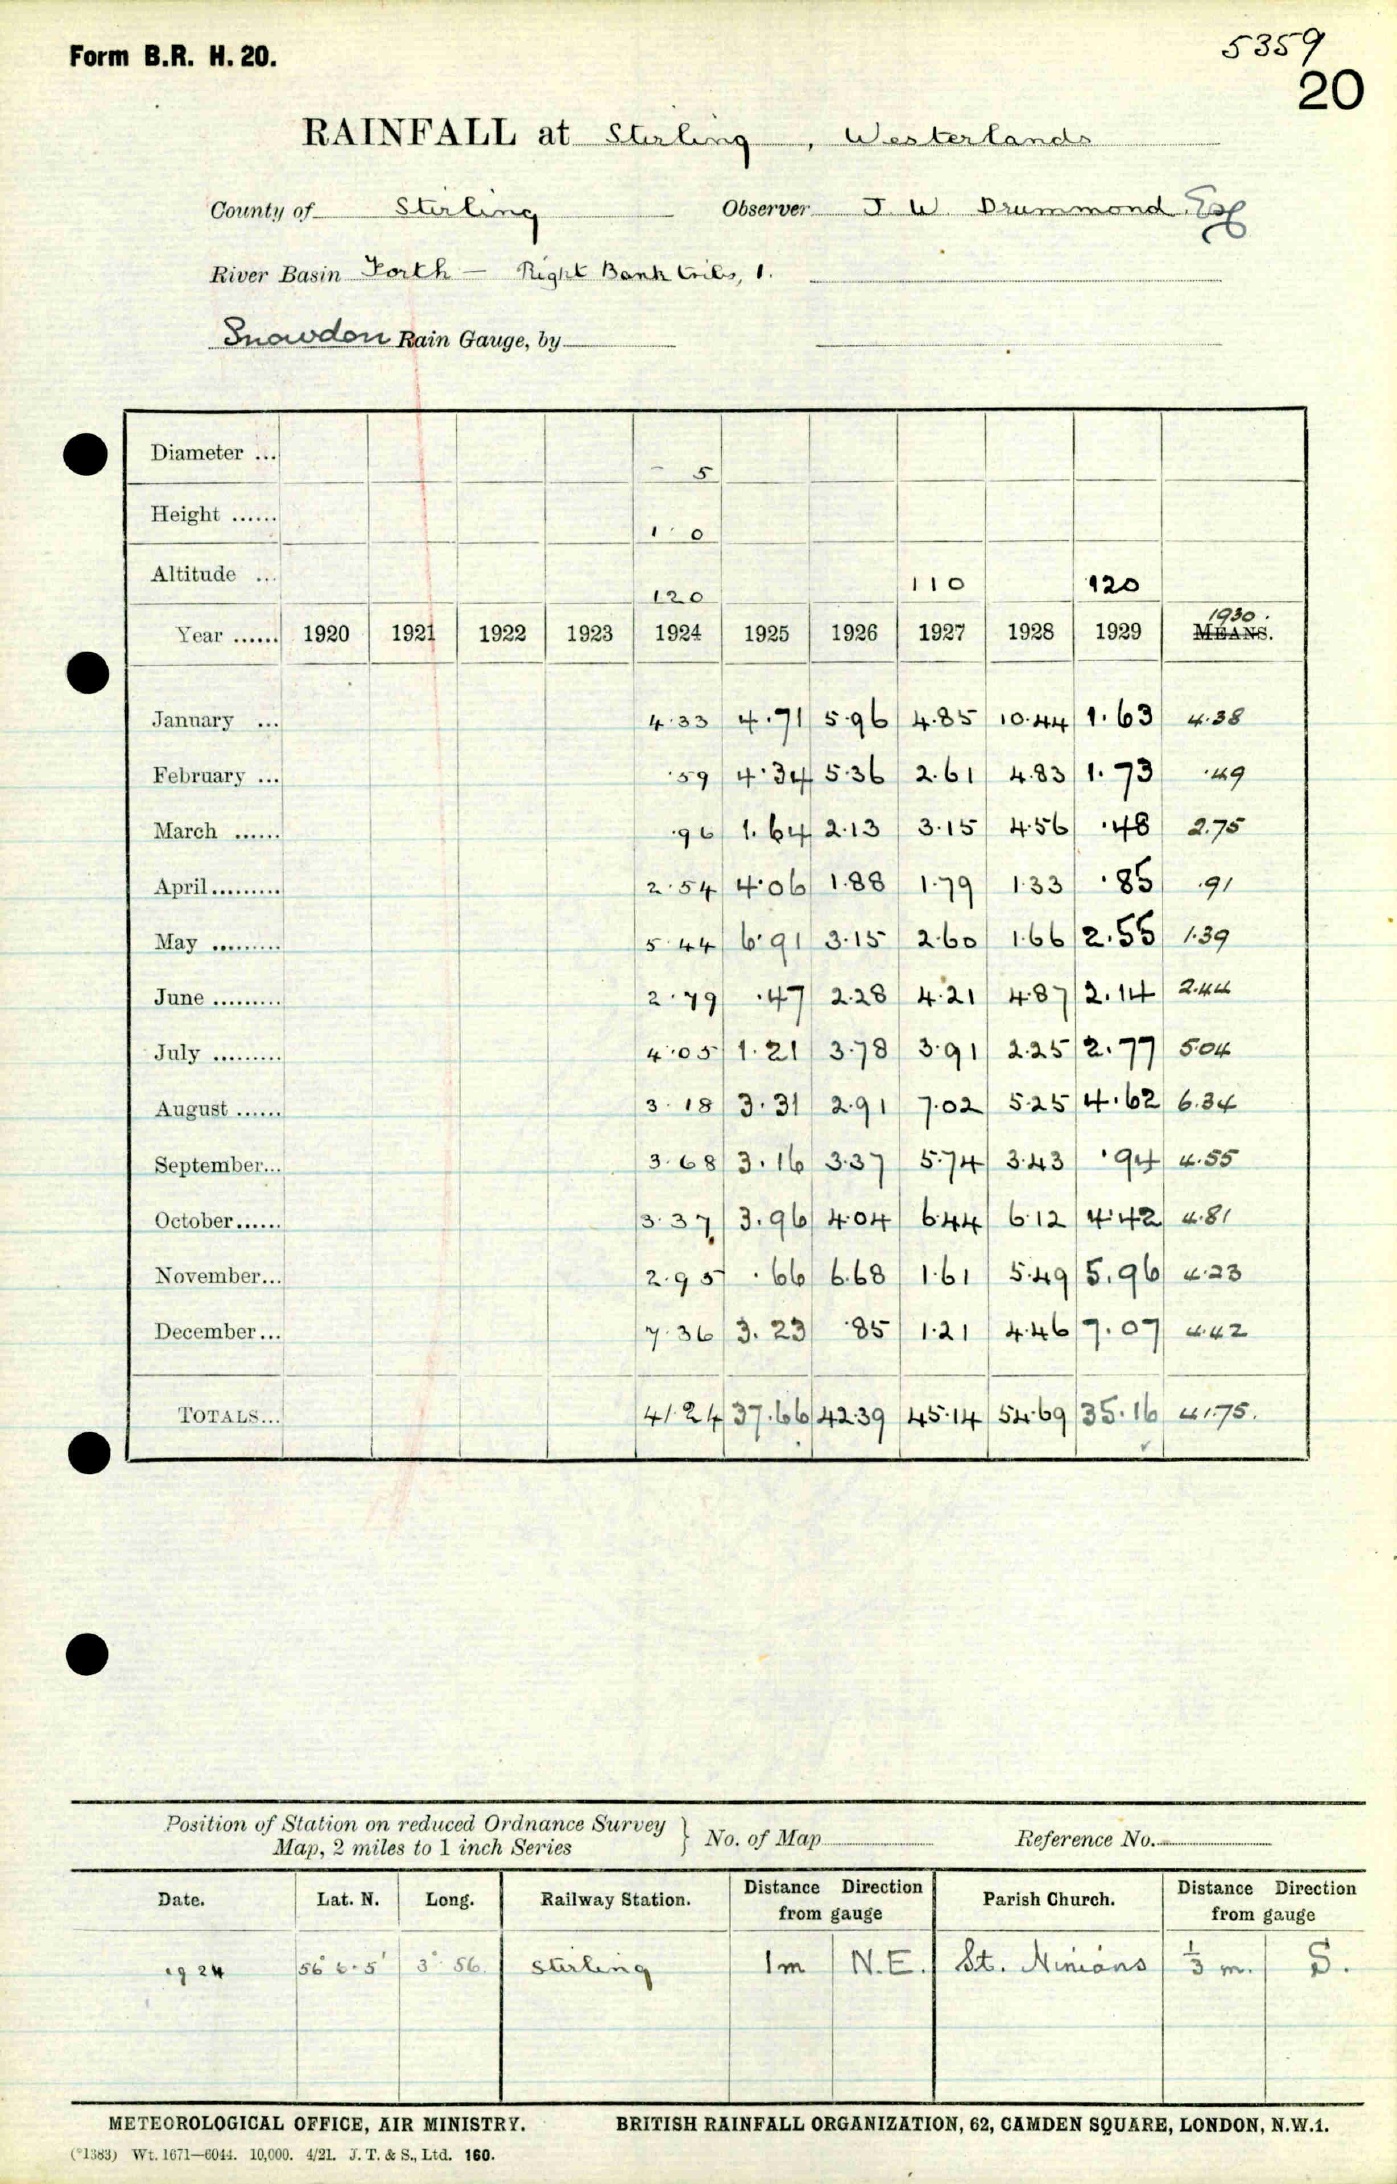 Form B.R. H. 20.
5359
20
RAINFALL at Stirling, Westerlands
County of Stirling Observer J. W. Drummond, Esq
River Basin Forth — Right Bank tribs, 1.
Snowdon Rain Gauge, by
Diameter ... 5
Height ...... 1 0
Altitude ... 120 110 120
Year ...... 1920 1921 1922 1923 1924 1925 1926 1927 1928 1929 1930. MEANS.
January ... 4.33 4.71 5.96 4.85 10.44 1.63 4.38
February ... .59 4.34 5.36 2.61 4.83 1.73 .49
March ...... .96 1.64 2.13 3.15 4.56 .48 2.75
April......... 2.54 4.06 1.88 1.79 1.33 .85 .91
May ......... 5.44 6.91 3.15 2.60 1.66 2.55 1.39
June ......... 2.79 .47 2.28 4.21 4.87 2.14 2.44
July ......... 4.05 1.21 3.78 3.91 2.25 2.77 5.04
August ...... 3.18 3.31 2.91 7.02 5.25 4.62 6.34
September... 3.68 3.16 3.37 5.74 3.43 .94 4.55
October...... 3.37 3.96 4.04 6.44 6.12 4.42 4.81
November... 2.95 .66 6.68 1.61 5.49 5.96 4.23
December... 7.36 3.23 .85 1.21 4.46 7.07 4.42
TOTALS... 41.24 37.66 42.39 45.14 54.69 35.16 41.75.
Position of Station on reduced Ordnance Survey
Map, 2 miles to 1 inch Series } No. of Map Reference No.
Date. Lat. N. Long. Railway Station. Distance Direction from gauge Parish Church. Distance Direction from gauge
1924 56° 6.5' 3° 56 Stirling 1m N.E. St. Ninians 1/3 m. S.
METEOROLOGICAL OFFICE, AIR MINISTRY. BRITISH RAINFALL ORGANIZATION, 62, CAMDEN SQUARE, LONDON, N.W.1.
(*1383) Wt. 1671—6044. 10,000. 4/21. J. T. & S., Ltd. 160.